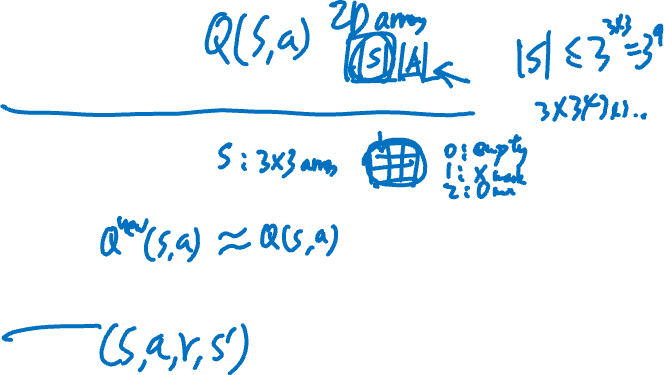 Q(S,a) 2D array
|S| |A|
|S| ≤ 3^{3×3} = 3^9
S : 3×3 array
0 : empty
1 : X mark
2 : O
Q^{new}(S,a) ≈ Q(S,a)
(S,a,r,s')